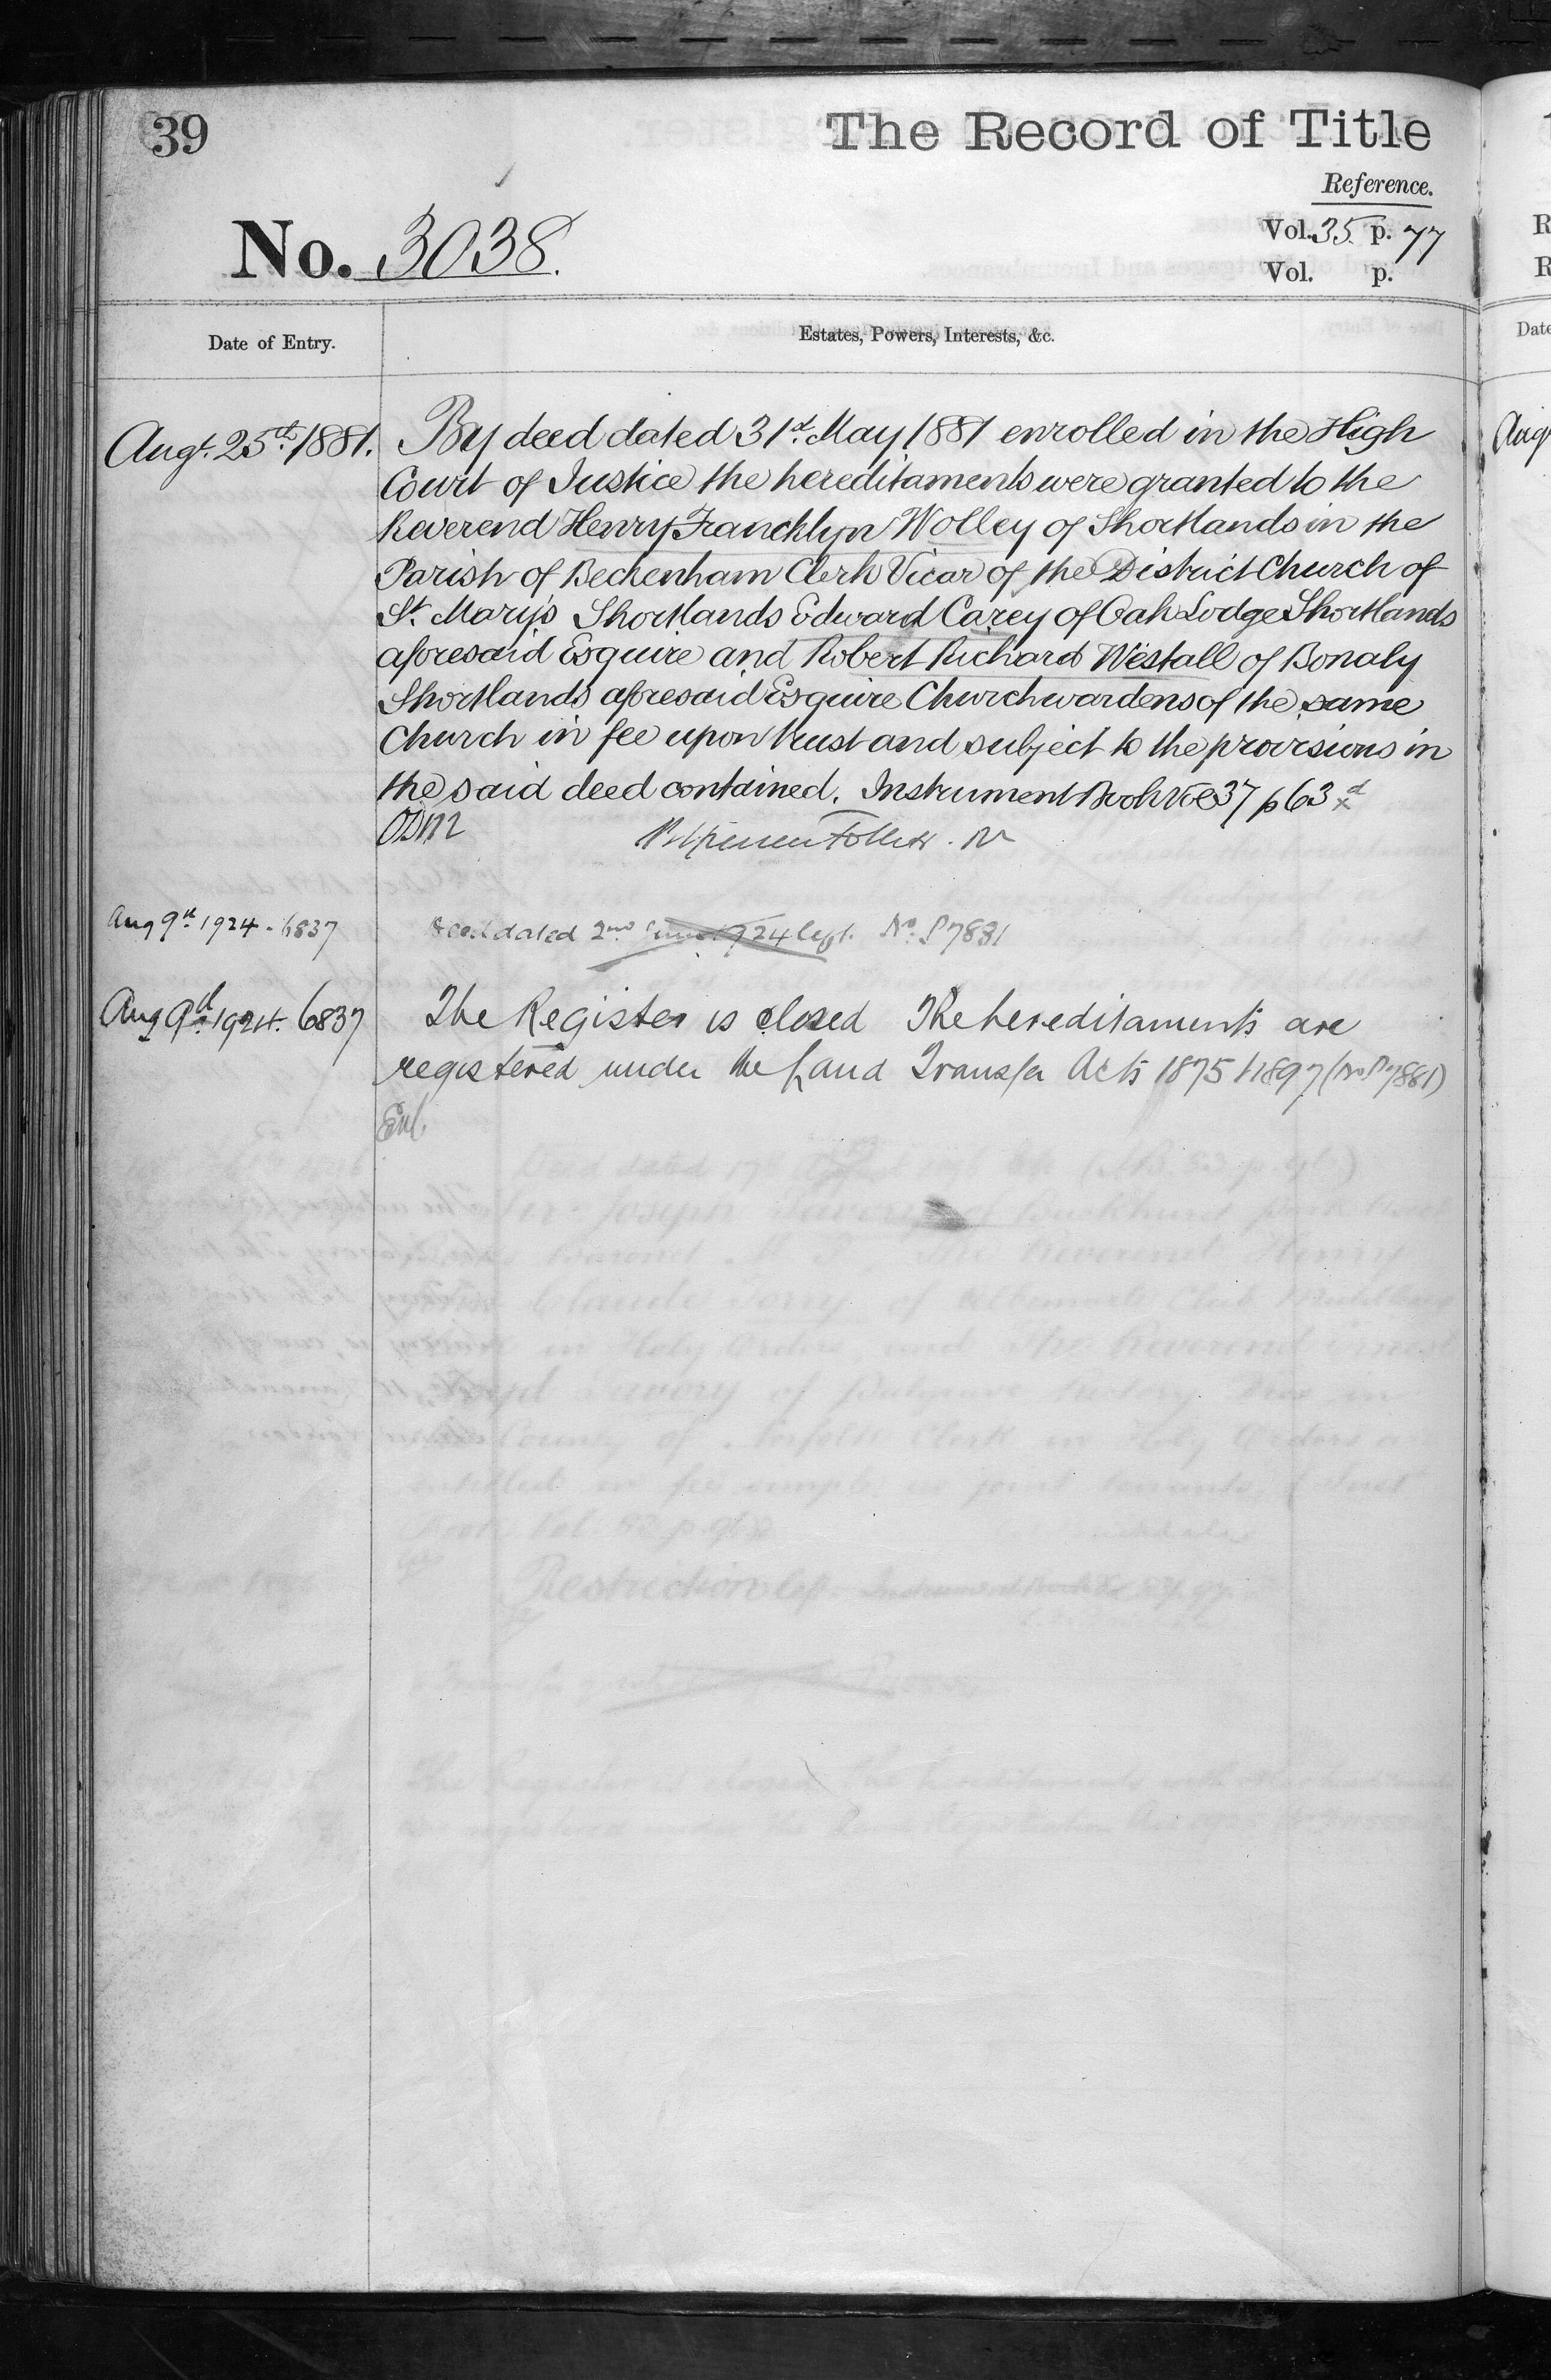 39
The Record of Title
Reference.
No. 3038.
Vol. 35 p. 77
Vol. p.
Date of Entry.
Estates, Powers, Interests, &c.
Augt. 25th 1881.
By deed dated 31st May 1881 enrolled in the High
Court of Justice the hereditaments were granted to the
Reverend Henry Francklyn Wolley of Shortlands in the
Parish of Beckenham Clerk Vicar of the District Church of
St. Mary's Shortlands Edward Carey of Oak Lodge Shortlands
aforesaid Esquire and Robert Richard Westall of Bonaly
Shortlands aforesaid Esquire Churchwardens of the same
Church in fee upon trust and subject to the provisions in
the said deed contained. Instrument Book Vol 37 p 63
ODM
Aug 9th 1924 . 6837
deed dated 2nd June 1924 Left. No.
Aug 9th 1924. 6837
The Register is closed The hereditaments are
registered under the Land Transfer Acts 1875 & 1897 (No P 7881)
R
R
Date
Aug